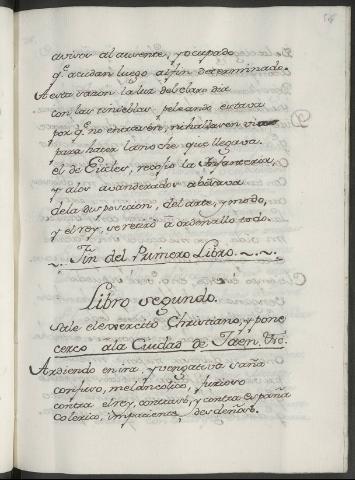 54
avisos al ausente, y ocupado
q.e acudan luego al fin determinado.
A esta razon la luz del claro dia
con las tinieblas peleando estava
por q.e no entrasen, ni hallasen via
para hacer la noche que llegava
el de Eicles, recojio la Infanteria,
y a los avanderados abisava
de la disposicion, del arte, y modo,
y el rey, se retiró a ordenallo todo.
Fin del Primero Libro.
Libro segundo.
Sale el exercito Christiano, y pone
cerco a la Ciudad de Jaen.
Ardiendo en ira, y vengativa saña
confuso, melancolico, furioso
contra el rey, contrario, y contra españa
colerico, impaciente, desdeñoso.